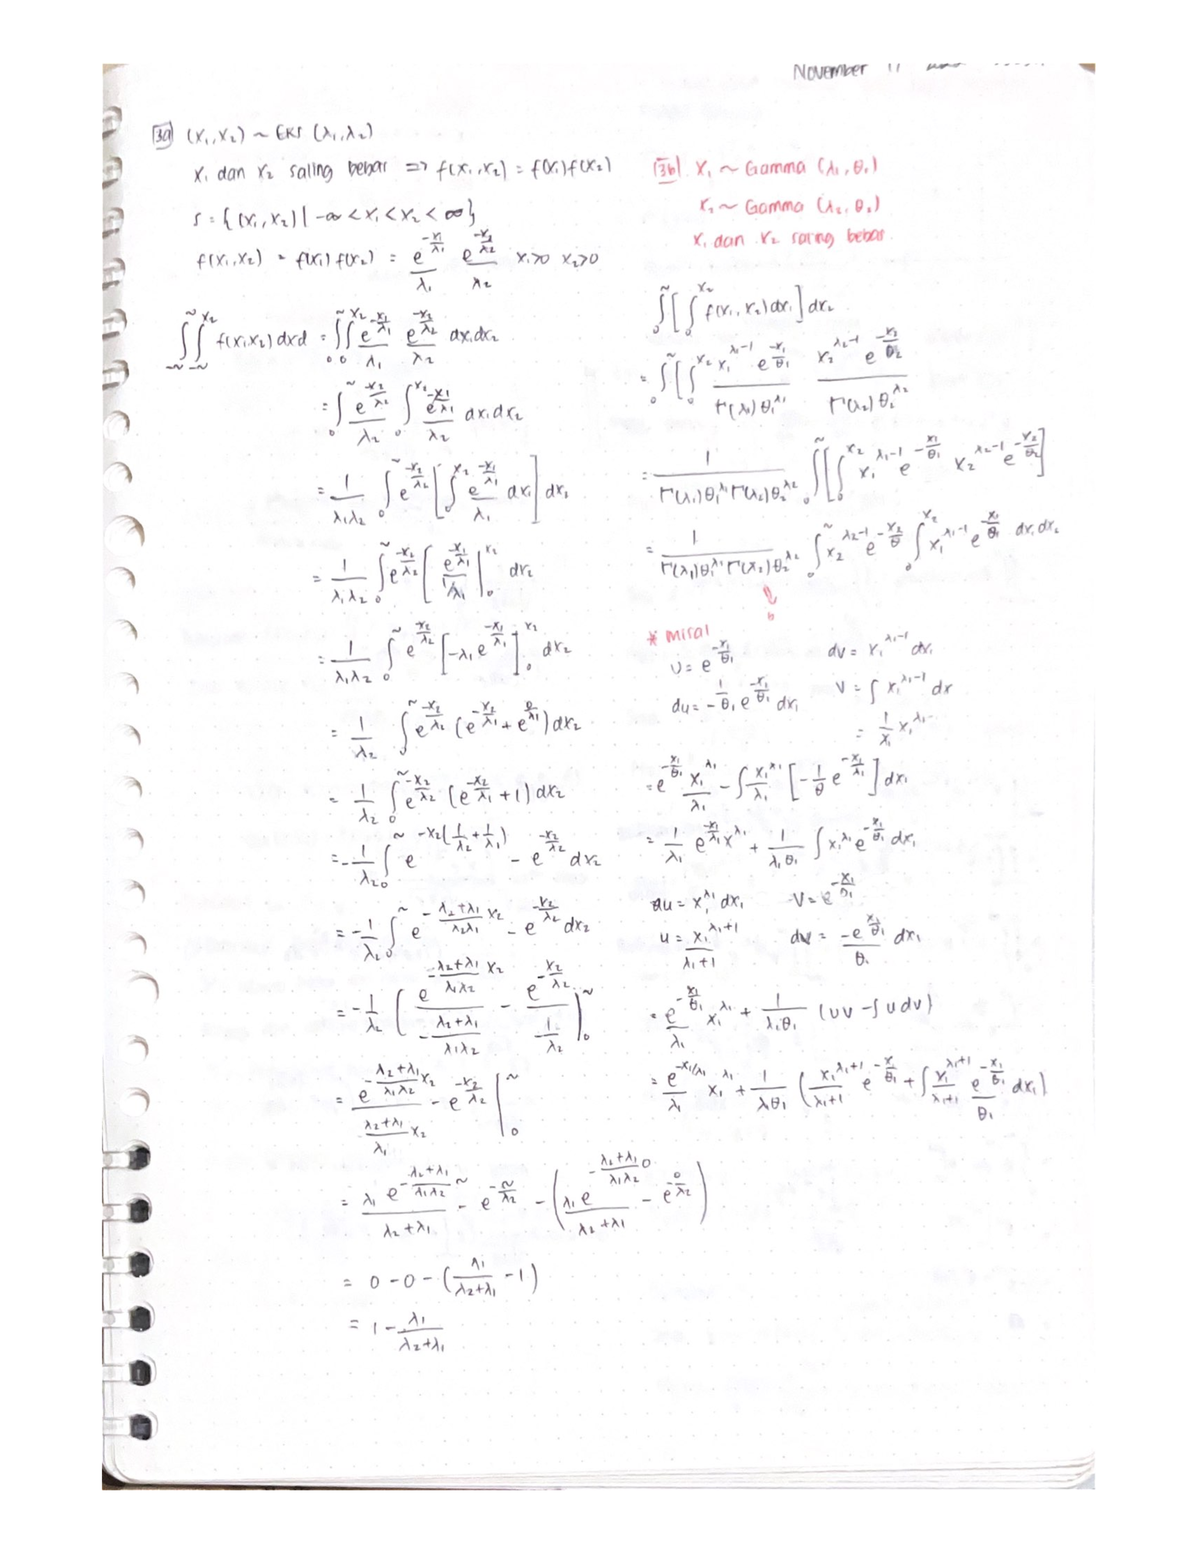 November 11
3a (X₁,X₂) ~ EKS (λ₁,λ₂)
X₁ dan X₂ saling bebas => f(x₁,x₂) = f(x₁)f(x₂)
S = {(x₁,x₂)| -∞ < x₁ < x₂ < ∞}
f(x₁,x₂) = f(x₁) f(x₂) = e^(-x₁/λ₁)/λ₁ e^(-x₂/λ₂)/λ₂ x₁>0 x₂>0
∫_{-~}^{~} ∫_{-~}^{x₂} f(x₁x₂) dxd = ∫₀^~ ∫₀^{x₂} e^(-x₁/λ₁)/λ₁ e^(-x₂/λ₂)/λ₂ dx₁dx₂
= ∫₀^~ e^(-x₂/λ₂)/λ₂ ∫₀^{x₂} e^(-x₁/λ₁)/λ₂ dx₁dx₂
= 1/(λ₁λ₂) ∫₀^~ e^(-x₂/λ₂) [∫₀^{x₂} e^(-x₁/λ₁)/λ₁ dx₁] dx₂
= 1/(λ₁λ₂) ∫₀^~ e^(-x₂/λ₂) [e^(-x₁/λ₁)/(1/λ₁) |₀^{x₂} dx₂
= 1/(λ₁λ₂) ∫₀^~ e^(x₂/λ₂) [-λ₁e^(-x₁/λ₁)]₀^{x₂} dx₂
= 1/λ₂ ∫₀^~ e^(-x₂/λ₂) (e^(-x₂/λ₁) + e^(0/λ₁)) dx₂
= 1/λ₂ ∫₀^~ e^(-x₂/λ₂) (e^(-x₂/λ₁) + 1) dx₂
= -1/λ₂ ∫₀^~ e^(-x₂(1/λ₂ + 1/λ₁)) - e^(-x₂/λ₂) dx₂
= -1/λ₂ ∫₀^~ e^(-(λ₂+λ₁)/(λ₂λ₁) x₂) - e^(-x₂/λ₂) dx₂
= -1/λ₂ ( e^(-(λ₂+λ₁)/(λ₁λ₂) x₂)/(-(λ₂+λ₁)/(λ₁λ₂)) - e^(-x₂/λ₂)/(1/λ₂) |₀^~
= e^(-(λ₂+λ₁)/(λ₁λ₂) x₂)/((λ₂+λ₁)/λ₁ x₂) - e^(-x₂/λ₂) |₀^~
= λ₁ e^(-(λ₂+λ₁)/(λ₁λ₂) ~)/(λ₂+λ₁) - e^(-~/λ₂) - (λ₁ e^(-(λ₂+λ₁)/(λ₁λ₂) 0)/(λ₂+λ₁) - e^(-0/λ₂))
= 0 - 0 - (λ₁/(λ₂+λ₁) - 1)
= 1 - λ₁/(λ₂+λ₁)
3b) X₁ ~ Gamma (λ₁, θ₁)
X₂ ~ Gamma (λ₂, θ₂)
X₁ dan X₂ saling bebas
∫₀^~ [∫₀^{x₂} f(x₁,x₂) dx₁] dx₂
= ∫₀^~ [∫₀^{x₂} x₁^(λ₁-1) e^(-x₁/θ₁)/(Γ(λ₁) θ₁^λ₁) x₂^(λ₂-1) e^(-x₂/θ₂)/(Γ(λ₂) θ₂^λ₂)
= 1/(Γ(λ₁)θ₁^λ₁ Γ(λ₂)θ₂^λ₂) ∫₀^~ [∫₀^{x₂} x₁^(λ₁-1) e^(-x₁/θ₁) x₂^(λ₂-1) e^(-x₂/θ₂)]
= 1/(Γ(λ₁)θ₁^λ₁ Γ(λ₂)θ₂^λ₂) ∫₀^~ x₂^(λ₂-1) e^(-x₂/θ) ∫₀^{x₂} x₁^(λ₁-1) e^(-x₁/θ₁) dx₁dx₂
* misal
U = e^(-x₁/θ₁) dv = x₁^(λ₁-1) dx₁
du = -1/θ₁ e^(-x₁/θ₁) dx₁ V = ∫ x₁^(λ₁-1) dx
= 1/λ₁ x₁^λ₁
= e^(-x₁/θ₁) x₁^λ₁/λ₁ - ∫ x₁^λ₁/λ₁ [-1/θ e^(-x₁/λ₁)] dx₁
= 1/λ₁ e^(-x₁/λ₁) x^λ₁ + 1/(λ₁θ₁) ∫ x₁^λ₁ e^(-x₁/θ₁) dx₁
du = x₁^λ₁ dx₁ V = e^(-x₁/θ₁)
u = x₁^(λ₁+1)/(λ₁+1) dv = -e^(x₁/θ₁)/θ₁ dx₁
= e^(-x₁/θ₁)/λ₁ x₁^λ₁ + 1/(λ₁θ₁) (uv - ∫ u dv)
= e^(-x₁/λ₁)/λ₁ x₁^λ₁ + 1/(λθ₁) (x₁^(λ₁+1)/(λ₁+1) e^(-x/θ₁) + ∫ x₁^(λ₁+1)/(λ₁+1) e^(-x₁/θ₁)/θ₁ dx₁)